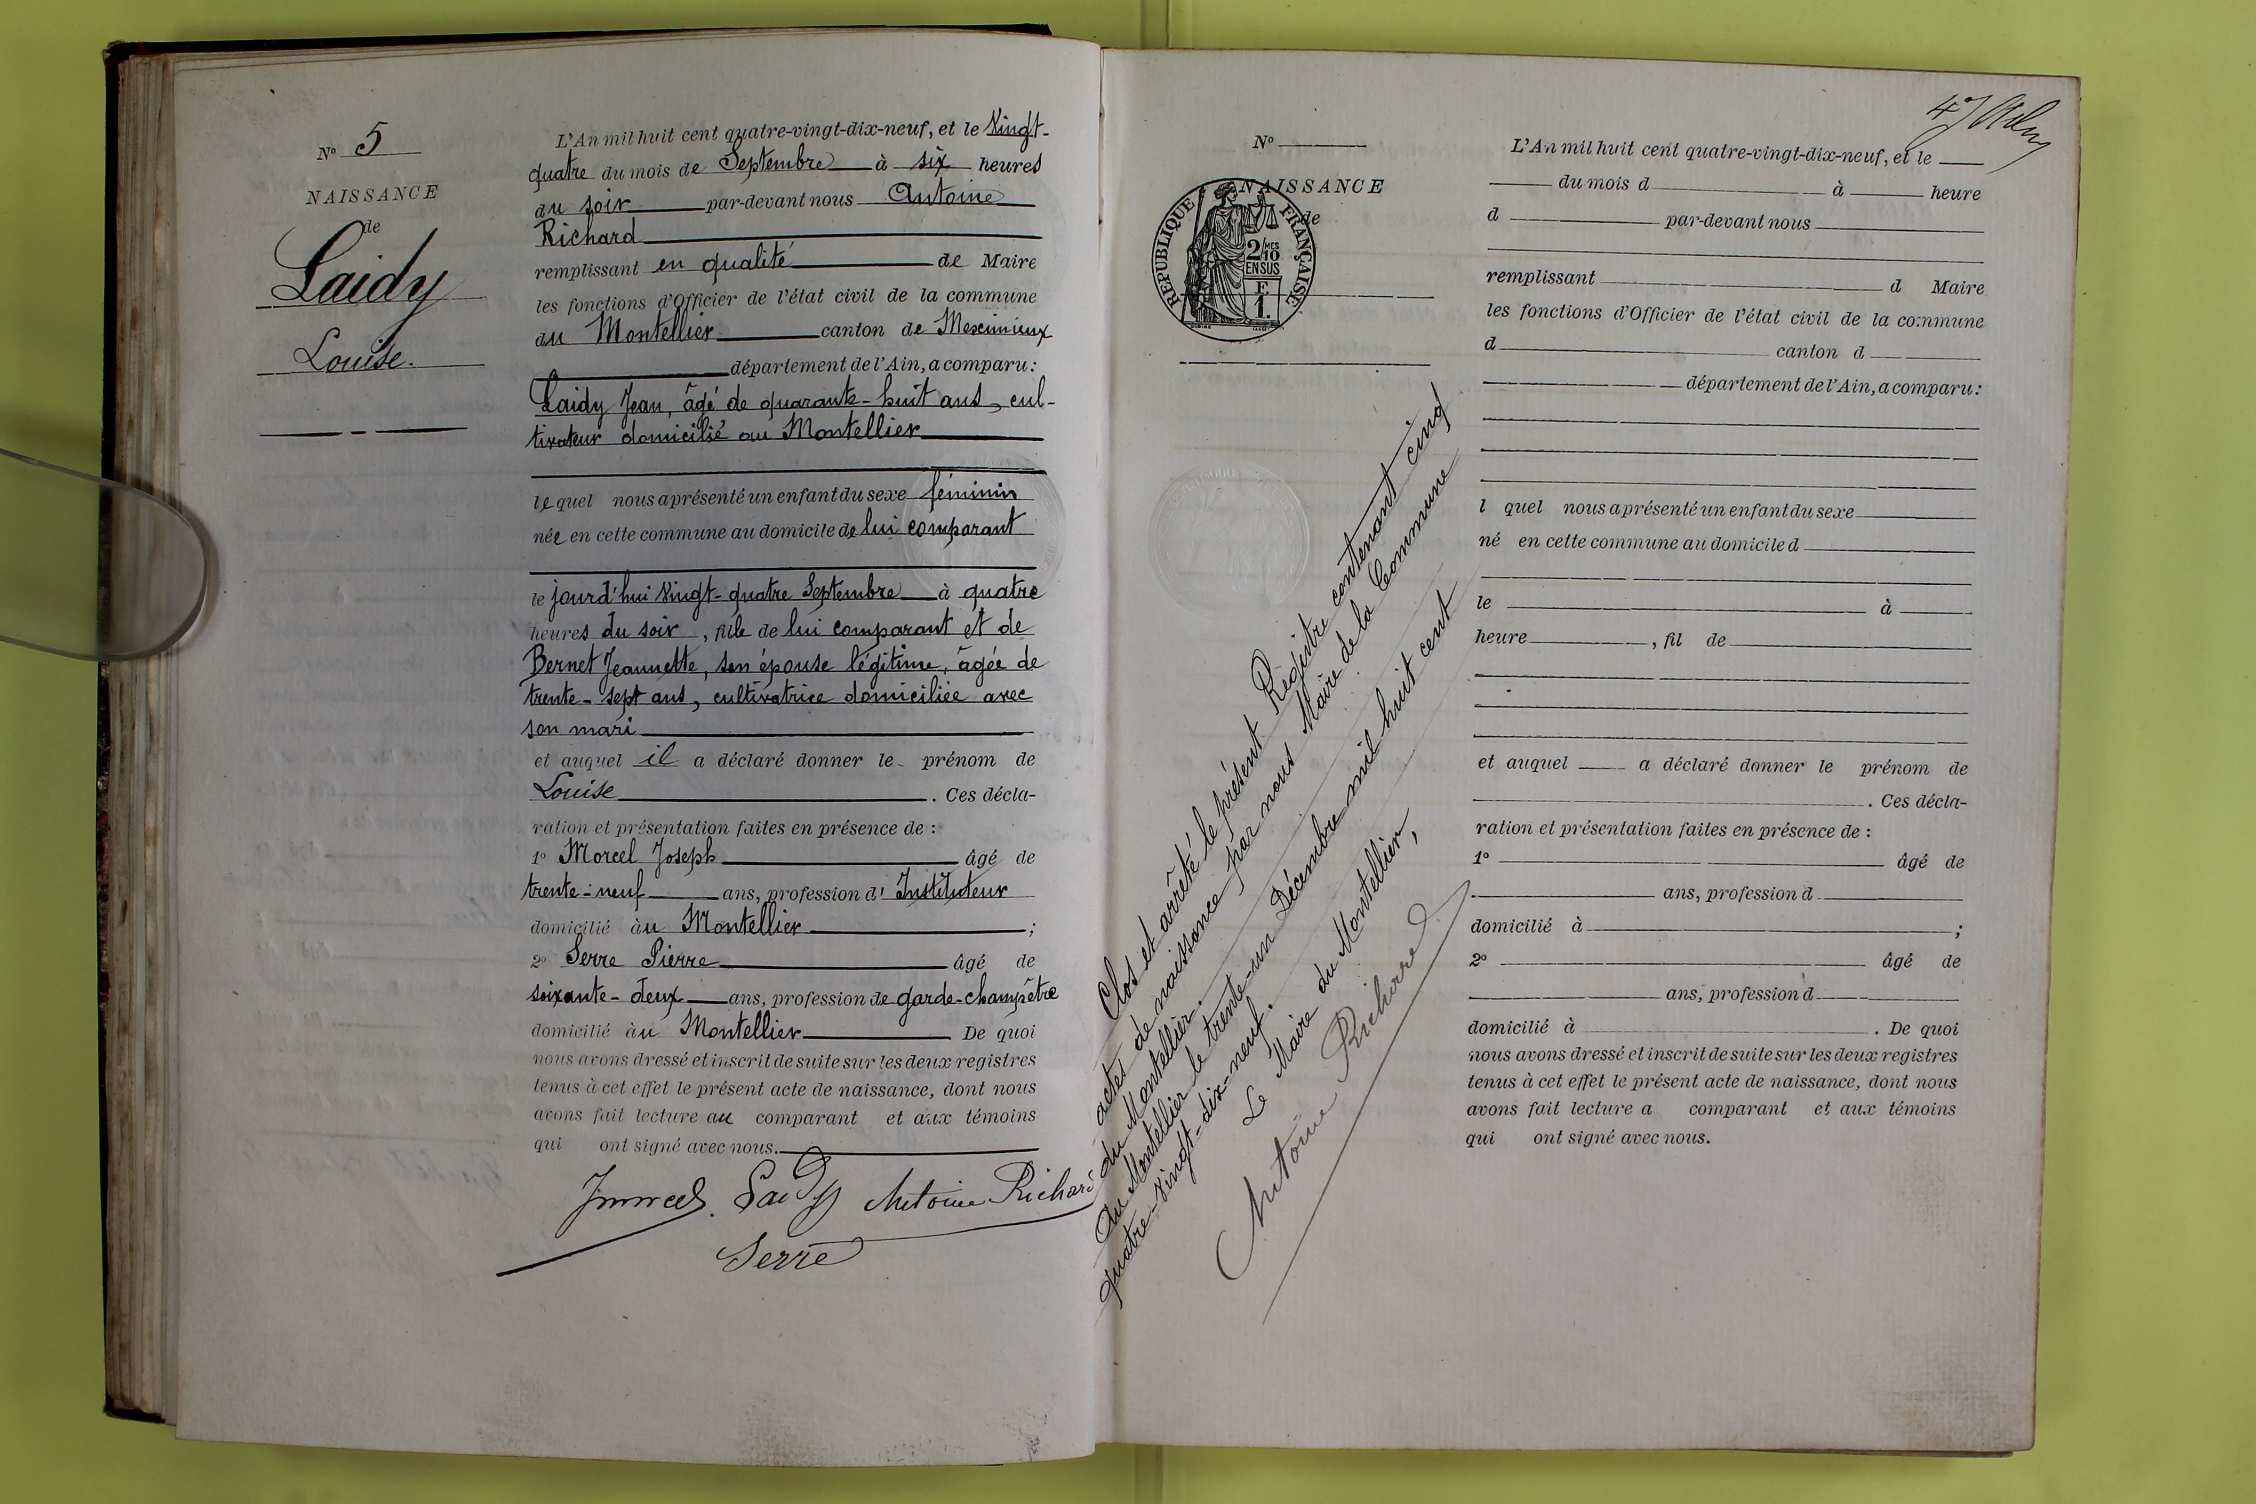 N° 5
NAISSANCE
de
Laidy
Louise.
L'An mil huit cent quatre-vingt-dix-neuf, et le vingt-
quatre du mois de Septembre à six heures
du soir par-devant nous Antoine
Richard
remplissant en qualité de Maire
les fonctions d'Officier de l'état civil de la commune
du Montellier canton de Meximieux
département de l'Ain, a comparu:
Laidy Jean, âgé de quarante-huit ans, cul-
tivateur domicilié au Montellier
lequel nous a présenté un enfant du sexe féminin
née en cette commune au domicile de lui comparant
le jourd'hui vingt-quatre Septembre à quatre
heures du soir, fille de lui comparant et de
Bernet Jeannette, son épouse légitime, âgée de
trente-sept ans, cultivatrice domiciliée avec
son mari
et auquel il a déclaré donner le prénom de
Louise. Ces décla-
ration et présentation faites en présence de :
1° Morcel Joseph âgé de
trente-neuf ans, profession d'Instituteur
domicilié àu Montellier ;
2° Serre Pierre âgé de
soixante-deux ans, profession de garde-champêtre
domicilié àu Montellier De quoi
nous avons dressé et inscrit de suite sur les deux registres
tenus à cet effet le présent acte de naissance, dont nous
avons fait lecture au comparant et aux témoins
qui ont signé avec nous.
Jmorcel. Laidy Antoine Richard
Serre
47
N°
NAISSANCE
de
REPUBLIQUE FRANÇAISE
2/10 MES
EN SUS
F.
1.
L'An mil huit cent quatre-vingt-dix-neuf, et le
du mois d à heure
d par-devant nous
remplissant d Maire
les fonctions d'Officier de l'état civil de la commune
d canton d
département de l'Ain, a comparu:
l quel nous a présenté un enfant du sexe
né en cette commune au domicile d
le à
heure , fil de
et auquel a déclaré donner le prénom de
. Ces décla-
ration et présentation faites en présence de :
1° âgé de
ans, profession d
domicilié à ;
2° âgé de
ans, profession d
domicilié à . De quoi
nous avons dressé et inscrit de suite sur les deux registres
tenus à cet effet le présent acte de naissance, dont nous
avons fait lecture a comparant et aux témoins
qui ont signé avec nous.
Clos et arrêté le présent Registre contenant cinq
actes de naissance par nous Maire de la Commune
du Montellier.
Au Montellier le trente-un Décembre mil huit cent
quatre-vingt-dix-neuf.
Le Maire du Montellier,
Antoine Richard